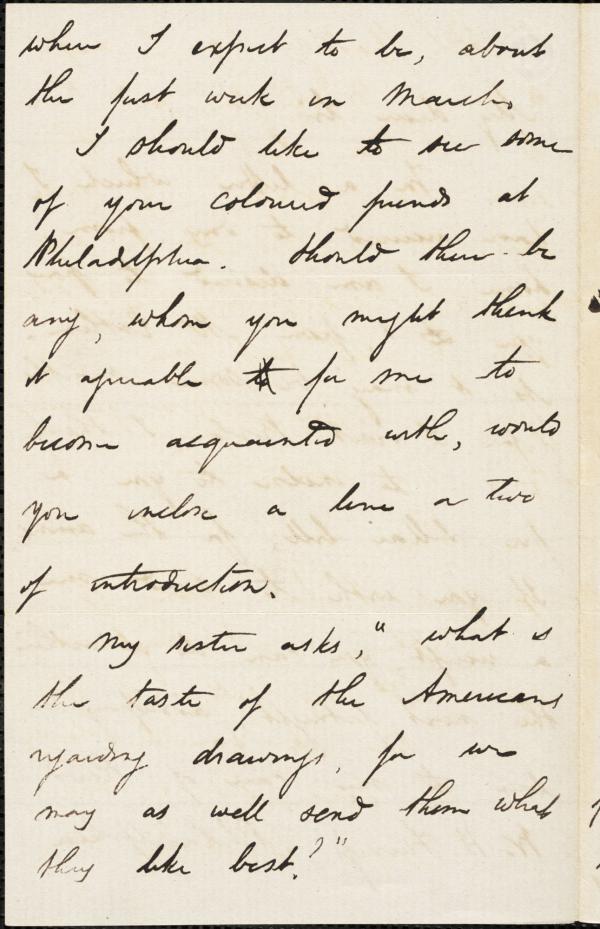 where I expect to be, about
the first week in March.
I should like to see some
of your coloured friends at
Philadelphia. Should there be
any, whom you might think
it agreeable for me to
become acquainted with, would
you inclose a line or two
of introduction.
My sister asks, "what is
the taste of the Americans
regarding drawings, for we
may as well send them what
they like best?"